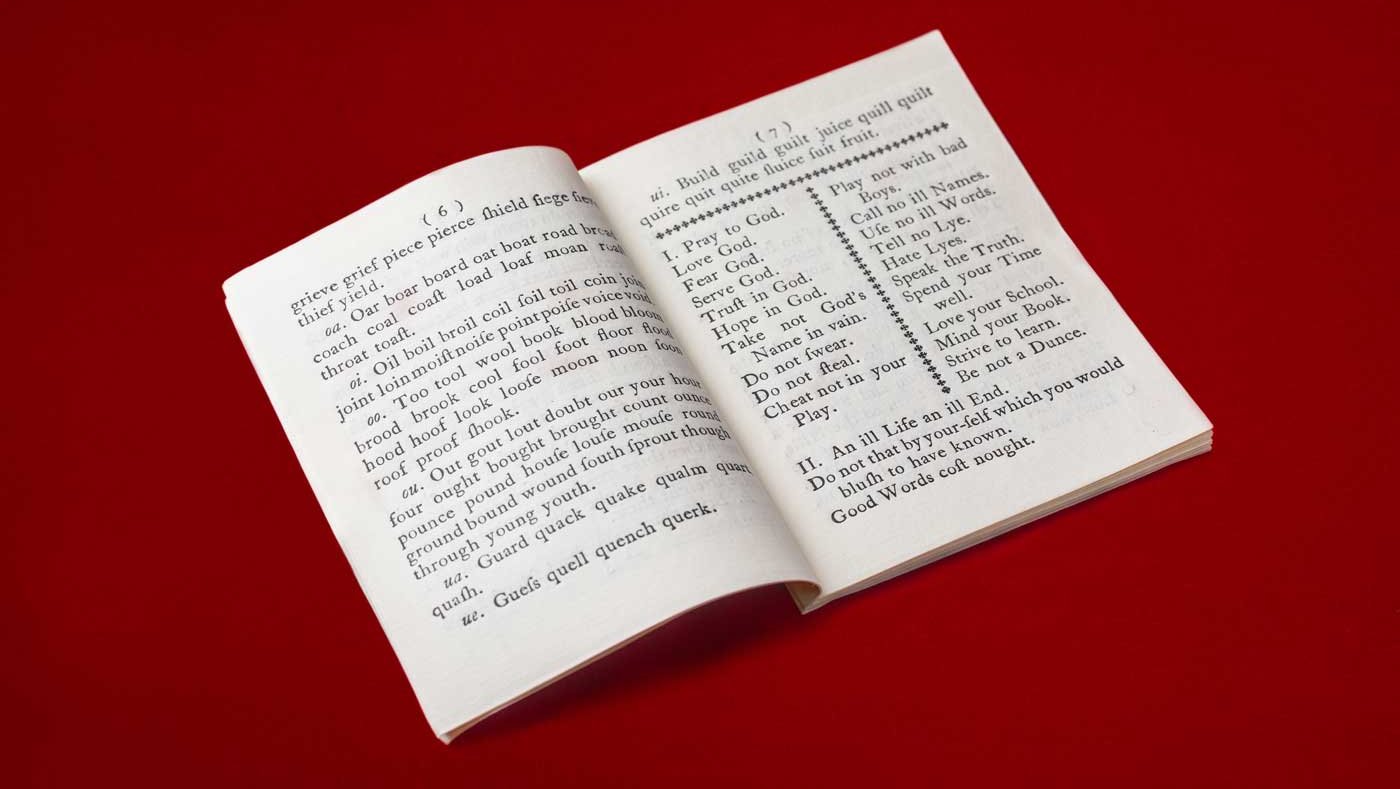 ( 6 )
grieve grief piece pierce ſhield ſiege
thief yield.
oa. Oar boar board oat boat road
coach coal coaſt load loaf moan
throat toaſt.
oi. Oil boil broil coil ſoil toil coin
joint loin moiſt noiſe point poiſe voice void
oo. Too tool wool book blood bloom
brood brook cool fool foot floor flood
hood hoof look looſe moon noon ſoon
roof proof ſhook.
ou. Out gout lout doubt our your hour
four ought bought brought count ounce
pounce pound houſe louſe mouſe round
ground bound wound ſouth ſprout though
through young youth.
ua. Guard quack quake qualm quart
quaſh.
ue. Gueſs quell quench querk.
( 7 )
ui. Build guild guilt juice quill quilt
quire quit quite ſluice ſuit fruit.
I. Pray to God.
Love God.
Fear God.
Serve God.
Truſt in God.
Hope in God.
Take not God's
Name in vain.
Do not ſwear.
Do not ſteal.
Cheat not in your
Play.
Play not with bad
Boys.
Call no ill Names.
Uſe no ill Words.
Tell no Lye.
Hate Lyes.
Speak the Truth.
Spend your Time
well.
Love your School.
Mind your Book.
Strive to learn.
Be not a Dunce.
II. An ill Life an ill End.
Do not that by your-ſelf which you would
bluſh to have known.
Good Words coſt nought.